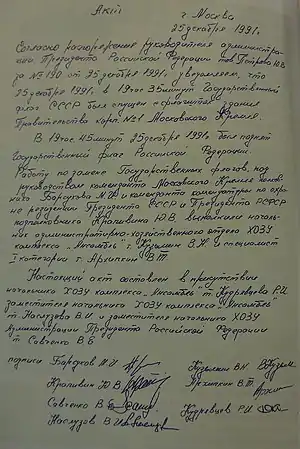 Акт
г. Москва
25 декабря 1991г.
Согласно распоряжения руководителя администра-
ции Президента Российской Федерации тов. Петрова Ю.В.
за № 190 от 25 декабря 1991г. уведомляем, что
25 декабря 1991г. в 19 час 35 минут Государственный
флаг СССР был спущен с флагштока здания
Правительства корп. №1 Московского Кремля.
В 19 час 45 минут 25 декабря 1991г. был поднят
Государственный флаг Российской Федерации.
Работу по замене Государственных флагов, под
руководством коменданта Московского Кремля полков.
Барсукова М.И. и коменданта комендатуры по охра-
не резиденции Президента СССР и Президента РСФСР
подполковника Крапивина Ю.В. выполняли началь-
ник административно-хозяйственного отдела ХОЗУ
комплекса „Ансамбль" т. Кузьмин В.Н. и специалист
I категории т. Архипкин В.Т.
Настоящий акт составлен в присутствии
начальника ХОЗУ комплекса „Ансамбль" т. Кудрявцева Р.И.
заместителя начальника ХОЗУ комплекса „Ансамбль"
т. В.И. и заместителя начальника ХОЗУ
Администрации Президента Российской Федерации
т. Савченко В.Е
подписи Барсуков М.И. Кузьмин В.Н.
Крапивин Ю.В. Архипкин В.Т.
Савченко В.Е. Кудрявцев Р.И.
В.И.